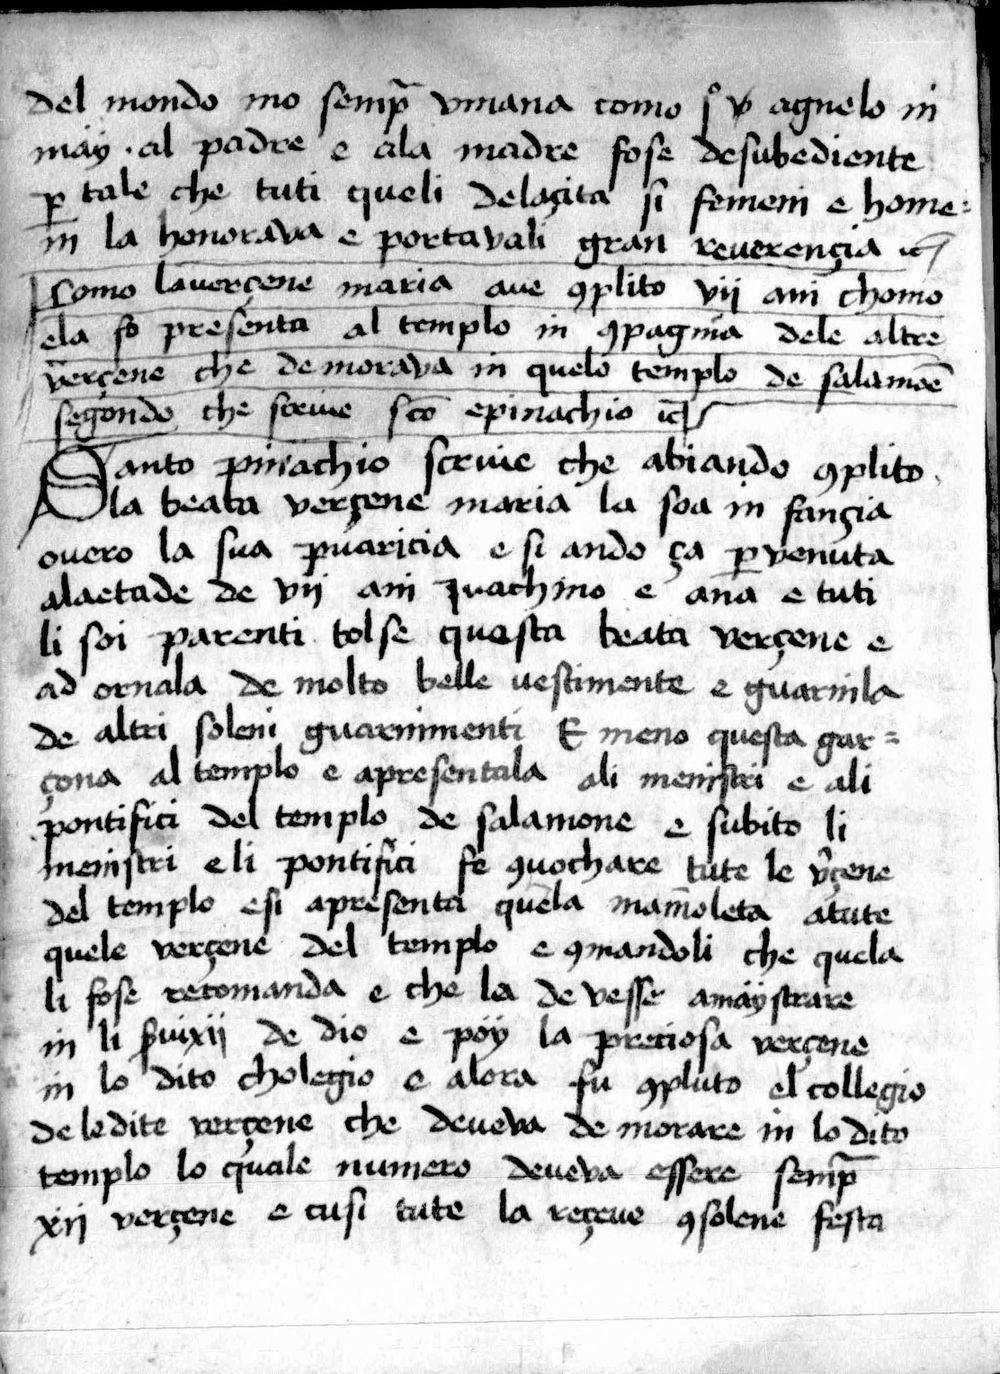 del mondo mo semp̄ vmana como agnelo in
may . al padre e ala madre fose desubediente
p̱ tale che tuti queli delaçita si femeni e home=
ni la honorava e portavali gran reverençia
Como laverçene maria ave ꝯplito vij ani chomo
ela fo presenta al templo in ꝯpagnia dele altre
verçene che demorava in quelo templo de salamōe
segondo che scrive sc̄o epinachio
Santo pinachio scrive che abiando ꝯplito
la beata verçene maria la soa in fançia
overo la sua puaricia e si ando ça p̱venuta
alaetade de vij ani Ivachino e ana e tuti
li soi parenti tolse questa beata verçene e
ad ornala de molto belle vestimente e guarnila
de altri soleni guarnimenti E meno questa gar=
çona al templo e apresentala ali menistri e ali
pontifici del templo de salamone e subito li
menistri e li pontifici fe ꝯvochare tute le v̄çene
del templo esi apresenta quela mamoleta atute
quele verçene del templo e ꝯmandoli che quela
li fose recomanda e che la devesse amaystrare
in li s̱vixij de dio e pöy la preciosa verçene
in lo dito cholegio e alora fu ꝯpluto el collegio
de ledite verçene che deveva demorare in lo dito
templo lo quale numero deveva essere semp̄
xij verçene e cusi tute la reçeve ꝯsolene festa